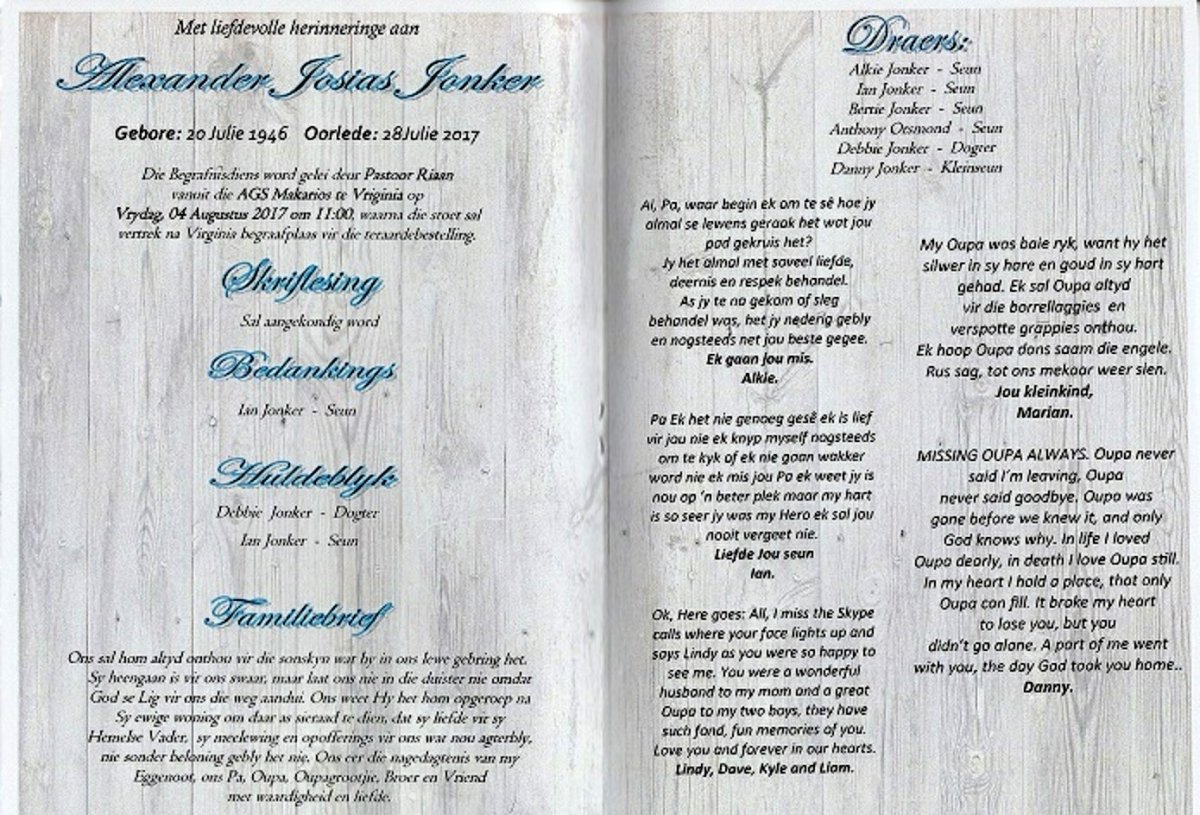 Met liefdevolle herinneringe aan
Alexander Josias Jonker
Gebore: 20 Julie 1946 Oorlede: 28Julie 2017
Die Begrafnisdiens word gelei deur Pastoor Riaan
vanuit die AGS Makarios te Vriginia op
Vrydag, 04 Augustus 2017 om 11:00, waarna die stoet sal
vertrek na Virginia begraafplaas vir die teraardebestelling.
Skriflesing
Sal aangekondig word
Bedankings
Ian Jonker - Seun
Huldeblyk
Debbie Jonker - Dogter
Ian Jonker - Seun
Familiebrief
Ons sal hom altyd onthou vir die sonskyn wat hy in ons lewe gebring het.
Sy heengaan is vir ons swaar, maar laat ons nie in die duister nie omdat
God se Lig vir ons die weg aandui. Ons weet Hy het hom opgeroep na
Sy ewige woning om daar as sieraad te dien, dat sy liefde vir sy
Hemelse Vader, sy meelewing en opofferings vir ons wat nou agterbly,
nie sonder beloning gebly het nie. Ons eer die nagedagtenis van my
Eggenoot, ons Pa, Oupa, Oupagrootjie, Broer en Vriend
met waardigheid en liefde.
Draers:
Alkie Jonker - Seun
Ian Jonker - Seun
Bertie Jonker - Seun
Anthony Orsmond - Seun
Debbie Jonker - Dogter
Danny Jonker - Kleinseun
Al, Pa, waar begin ek om te sê hoe jy
almal se lewens geraak het wat jou
pad gekruis het?
Jy het almal met soveel liefde,
deernis en respek behandel.
As jy te na gekom of sleg
behandel was, het jy nederig gebly
en nogsteeds net jou beste gegee.
Ek gaan jou mis.
Alkie.
Pa Ek het nie genoeg gesê ek is lief
vir jou nie ek knyp myself nogsteeds
om te kyk of ek nie gaan wakker
word nie ek mis jou Pa ek weet jy is
nou op 'n beter plek maar my hart
is so seer jy was my Hero ek sal jou
nooit vergeet nie.
Liefde Jou seun
Ian.
Ok, Here goes: All, I miss the Skype
calls where your face lights up and
says Lindy as you were so happy to
see me. You were a wonderful
husband to my mom and a great
Oupa to my two boys, they have
such fond, fun memories of you.
Love you and forever in our hearts.
Lindy, Dave, Kyle and Liam.
My Oupa was baie ryk, want hy het
silwer in sy hare en goud in sy hart
gehad. Ek sal Oupa altyd
vir die borrellaggies en
verspotte grappies onthou.
Ek hoop Oupa dans saam die engele.
Rus sag, tot ons mekaar weer sien.
Jou kleinkind,
Marian.
MISSING OUPA ALWAYS. Oupa never
said I'm leaving, Oupa
never said goodbye. Oupa was
gone before we knew it, and only
God knows why. In life I loved
Oupa dearly, in death I love Oupa still.
In my heart I hold a place, that only
Oupa can fill. It broke my heart
to lose you, but you
didn't go alone. A part of me went
with you, the day God took you home..
Danny.